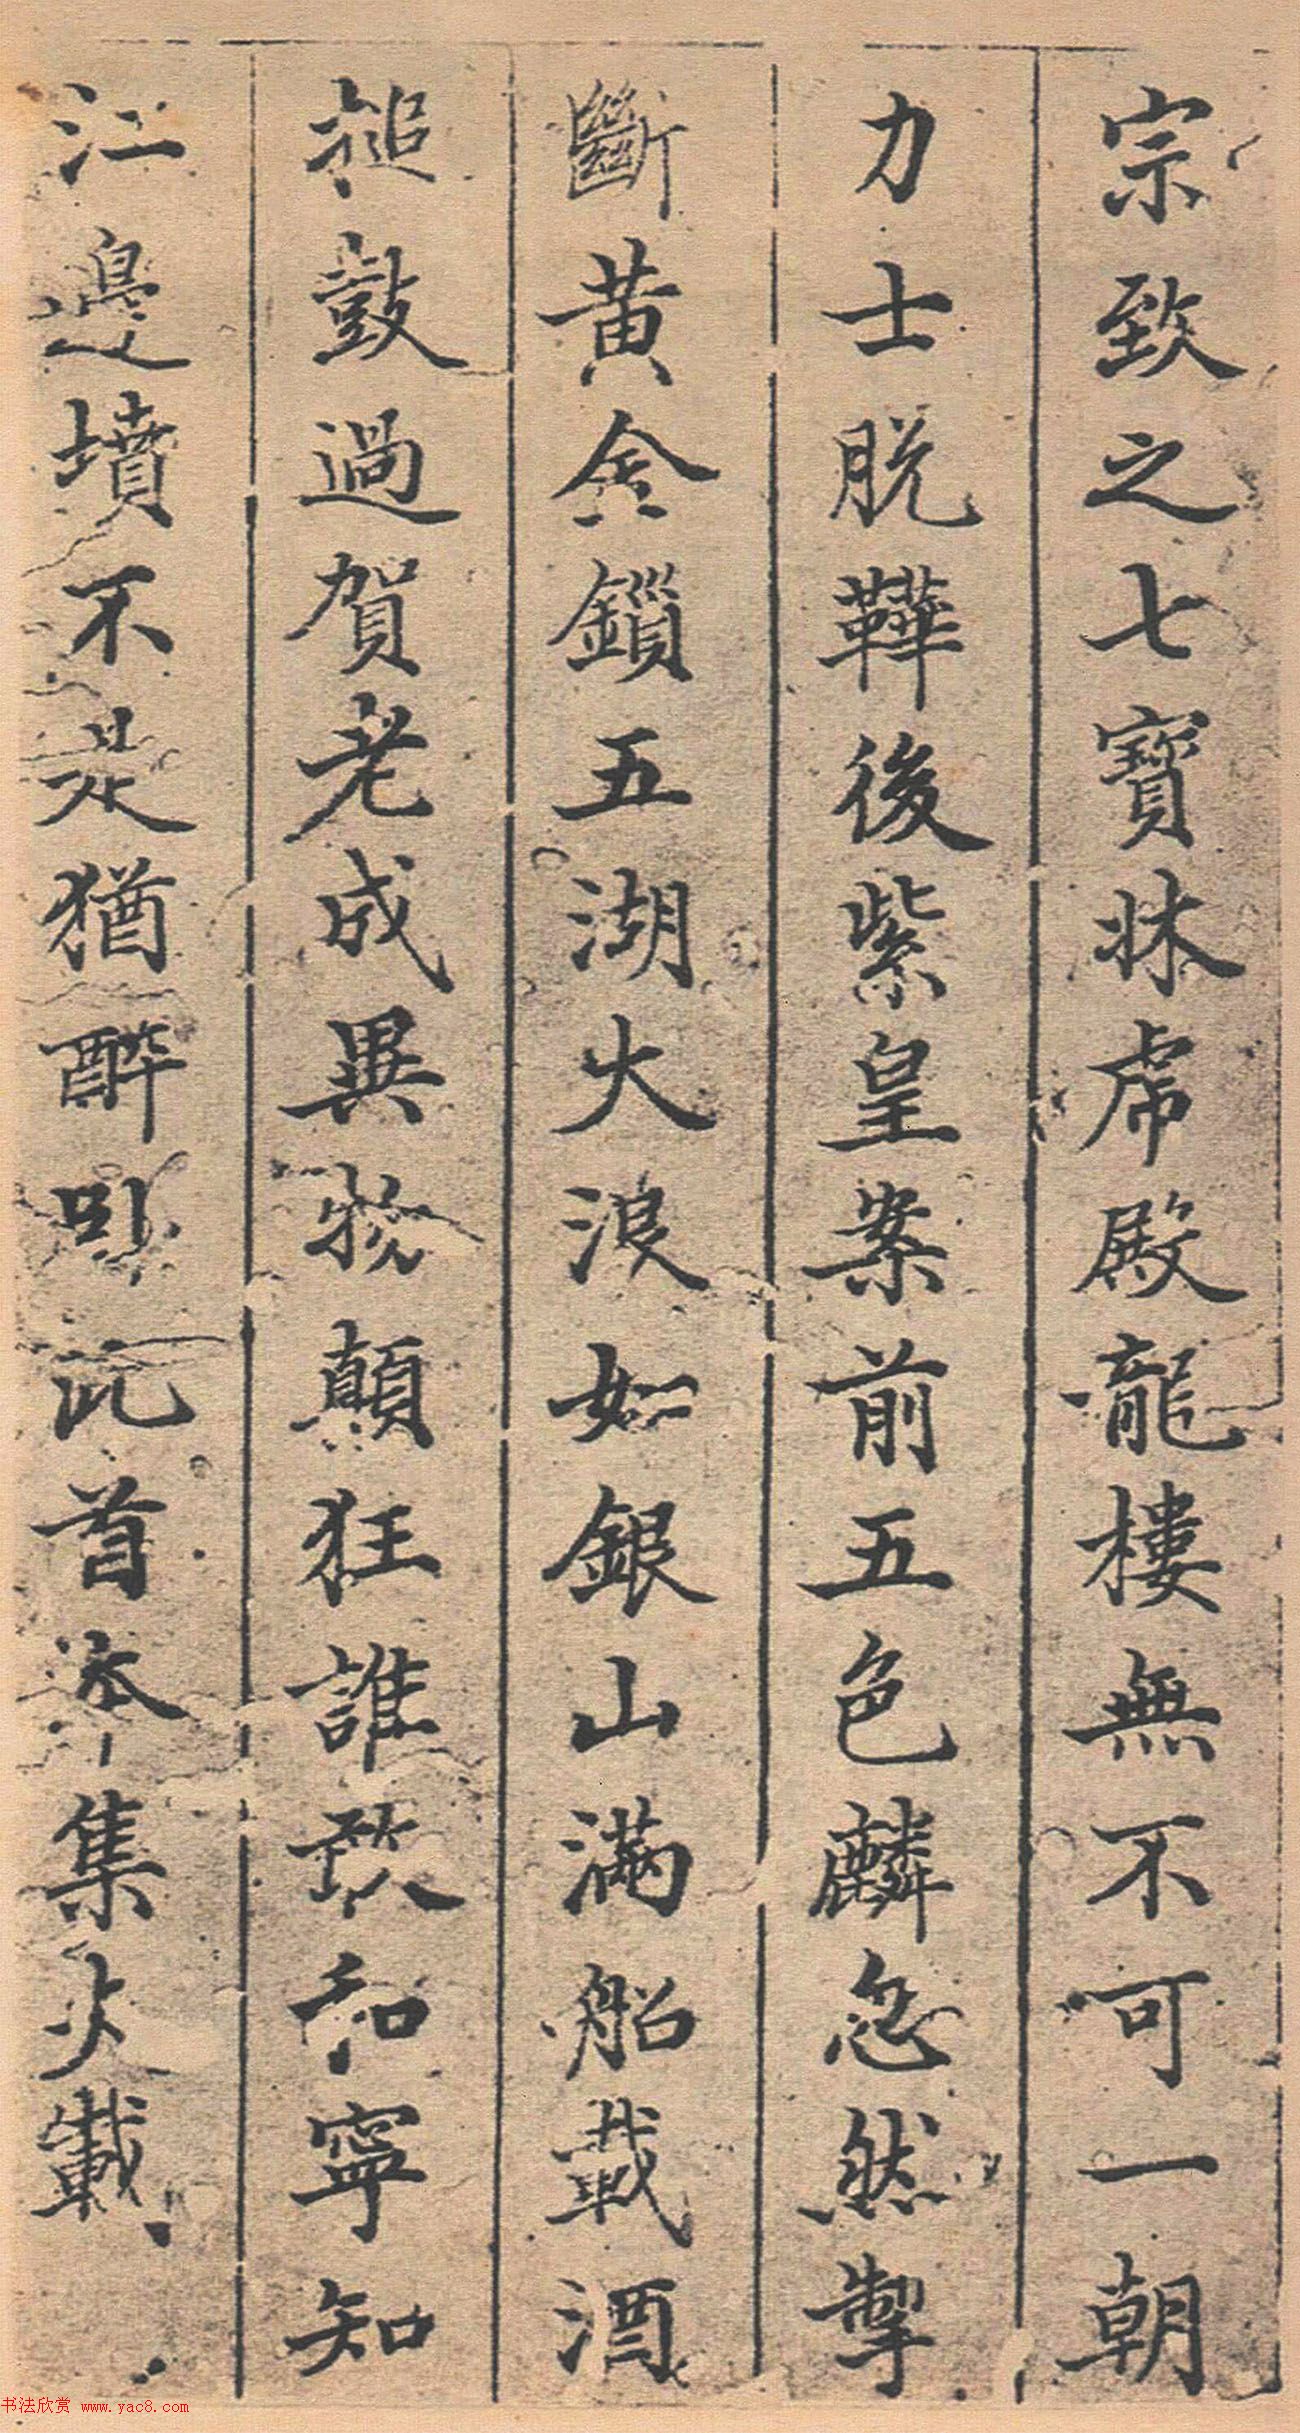 宗致之七寶牀虎殿龍樓無不可一朝
力士脫鞾後紫皇案前五色麟忽然掣
斷黃金鎖五湖大浪如銀山滿船載酒
搥鼓過賀老成異物顛狂誰敢和寧知
江邊墳不是猶醉臥此首本集不載
书法欣赏 www.yac8.com